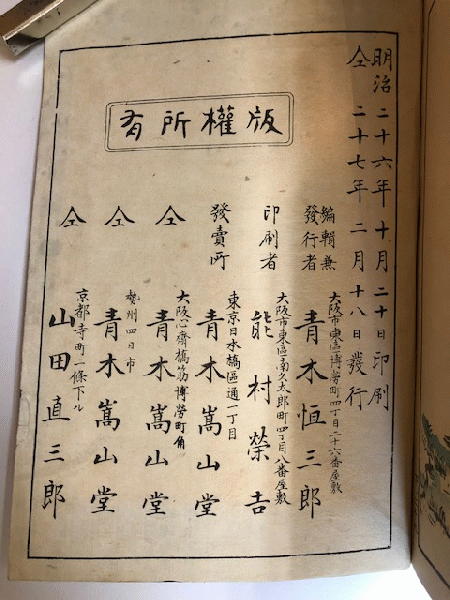 明治二十六年十月二十日印刷
仝二十七年二月十八日發行
版權所有
編輯兼
發行者
大阪市東區博勞町四丁目二十六番屋敷
青木恒三郎
印刷者
大阪市東區南久太郎町四丁目八番屋敷
能村榮吉
發賣所
東京日本橋區通一丁目
青木嵩山堂
仝
大阪心齋橋筋博勞町角
青木嵩山堂
仝
勢州四日市
青木嵩山堂
仝
京都寺町二條下ル
山田直三郎